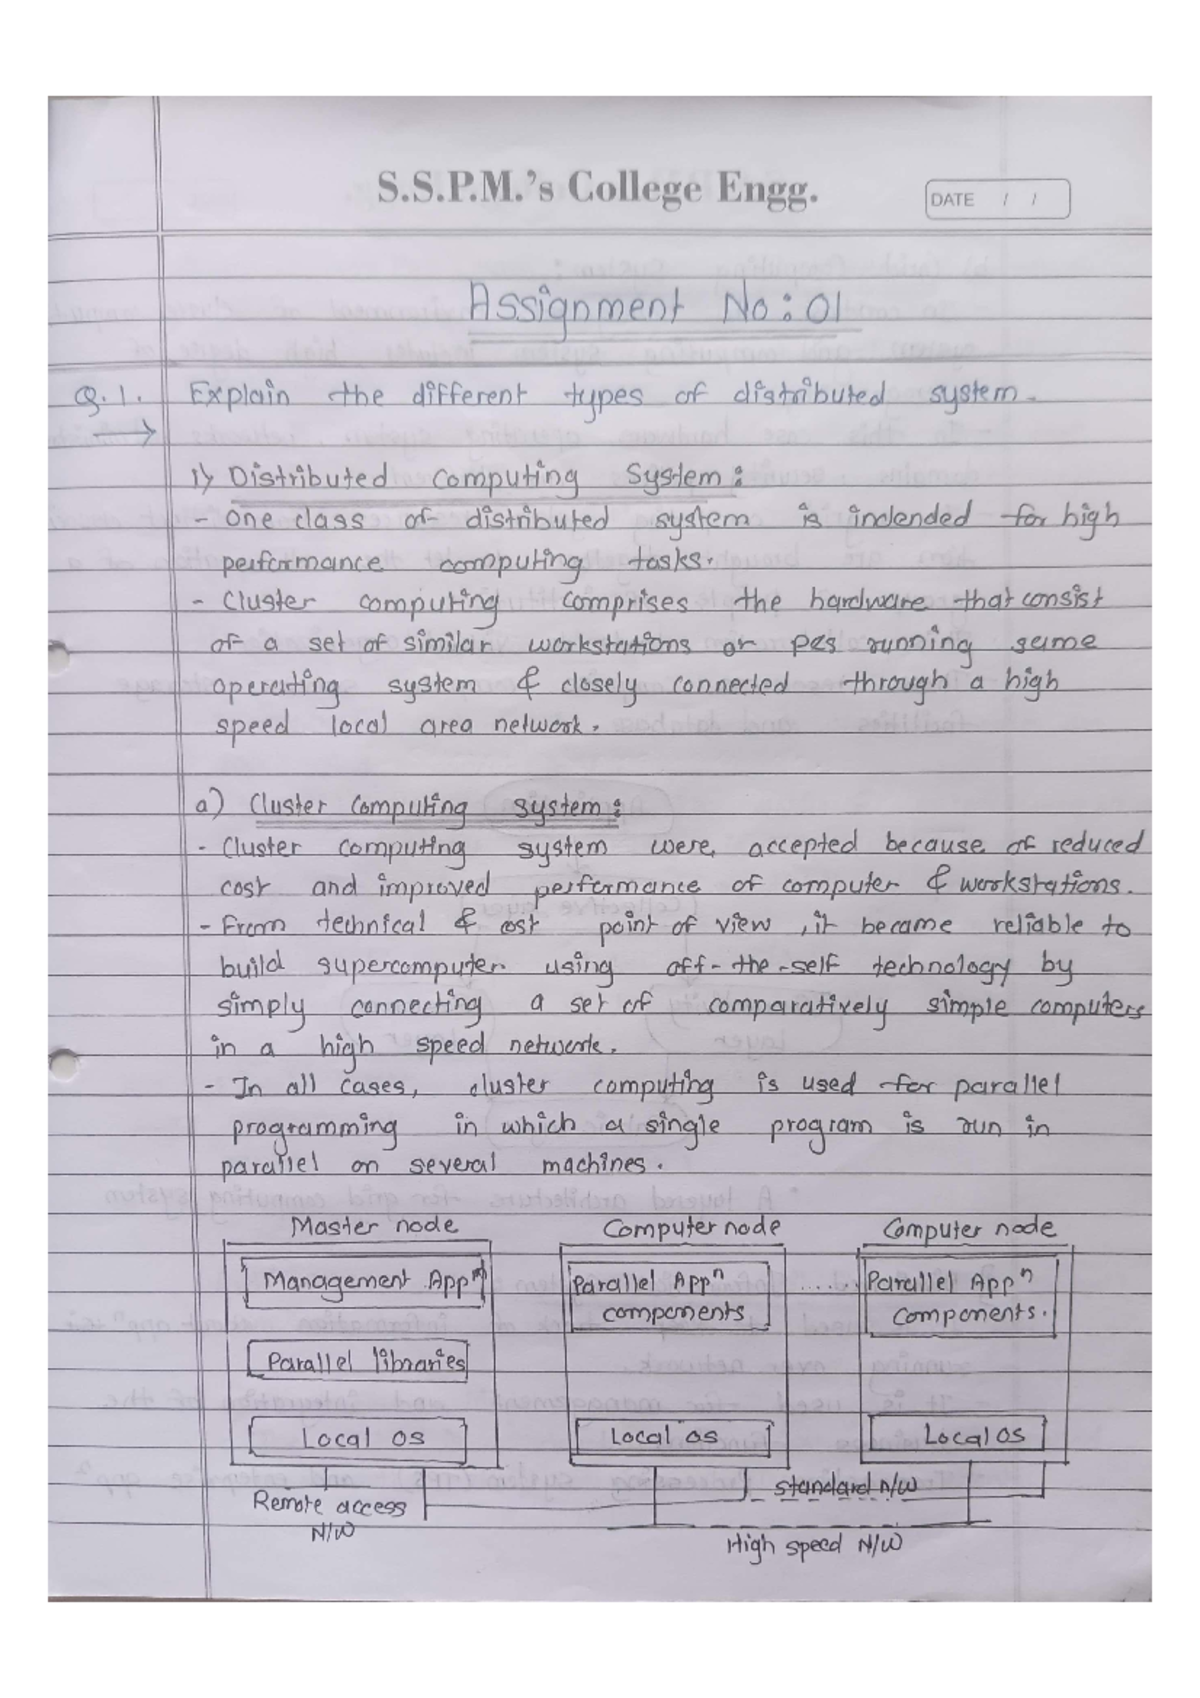 S.S.P.M.'s College Engg.
DATE / /
Assignment No: 01
Q.1. Explain the different types of distributed system.
→
1) Distributed Computing System:
- One class of distributed system is indended for high
performance computing tasks.
- Cluster computing comprises the hardware that consist
of a set of similar workstations or pcs running same
operating system & closely connected through a high
speed local area network.
a) Cluster Computing system:
- Cluster computing system were, accepted because of reduced
cost and improved performance of computer & workstations.
- From technical & cost point of view, it became reliable to
build supercomputer using off-the-self technology by
simply connecting a set of comparatively simple computers
in a high speed network.
- In all cases, cluster computing is used for parallel
programming in which a single program is run in
parallel on several machines.
Master node Computer node Computer node
Management Appⁿ Parallel Appⁿ ...... Parallel Appⁿ
components components.
Parallel libraries
Local OS Local OS Local OS
Remote access standard N/W
N/W
High speed N/W